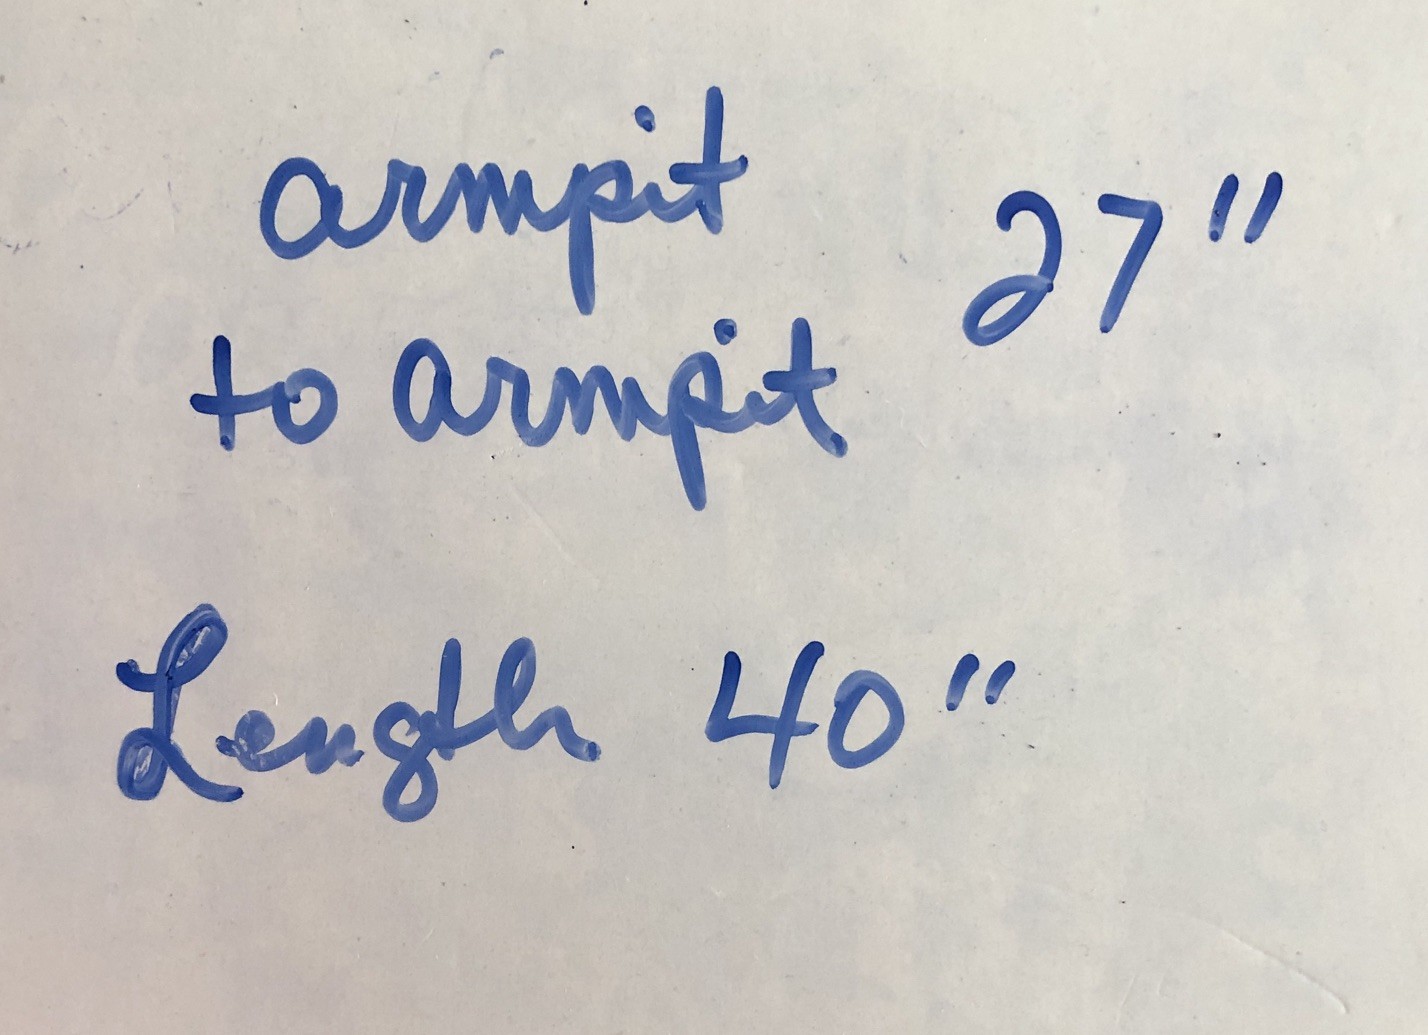 armpit 27"
to armpit
Length 40"